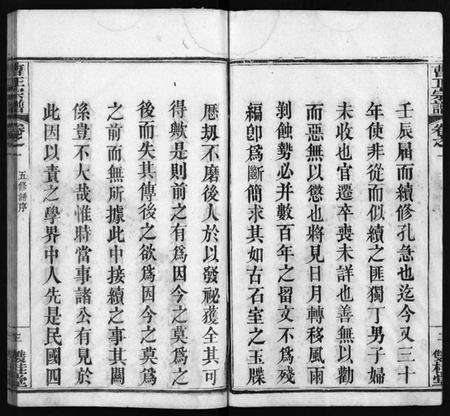 壬辰届而續修孔急也迄今又三十
年使非從而似續之匪獨丁男子婦
未收也官選卒喪未詳也善無以勸
而惡無以懲也將見日月轉移風雨
剝蝕勢必并數百年之留文不爲斷
編卽爲斷簡求其如古石室之玉牒
歷刧不磨後人於以發祕獲全其可
得歟是則前之有爲因今之莫爲之
後而失其傳後之欲爲因今之莫爲
之前而無所據此中接續之事其關
係豈不大哉惟時當事諸公有見於
此因以責之學界中人先是民國四
曹氏宗譜
卷之一
五修譜序
三
雙桂堂